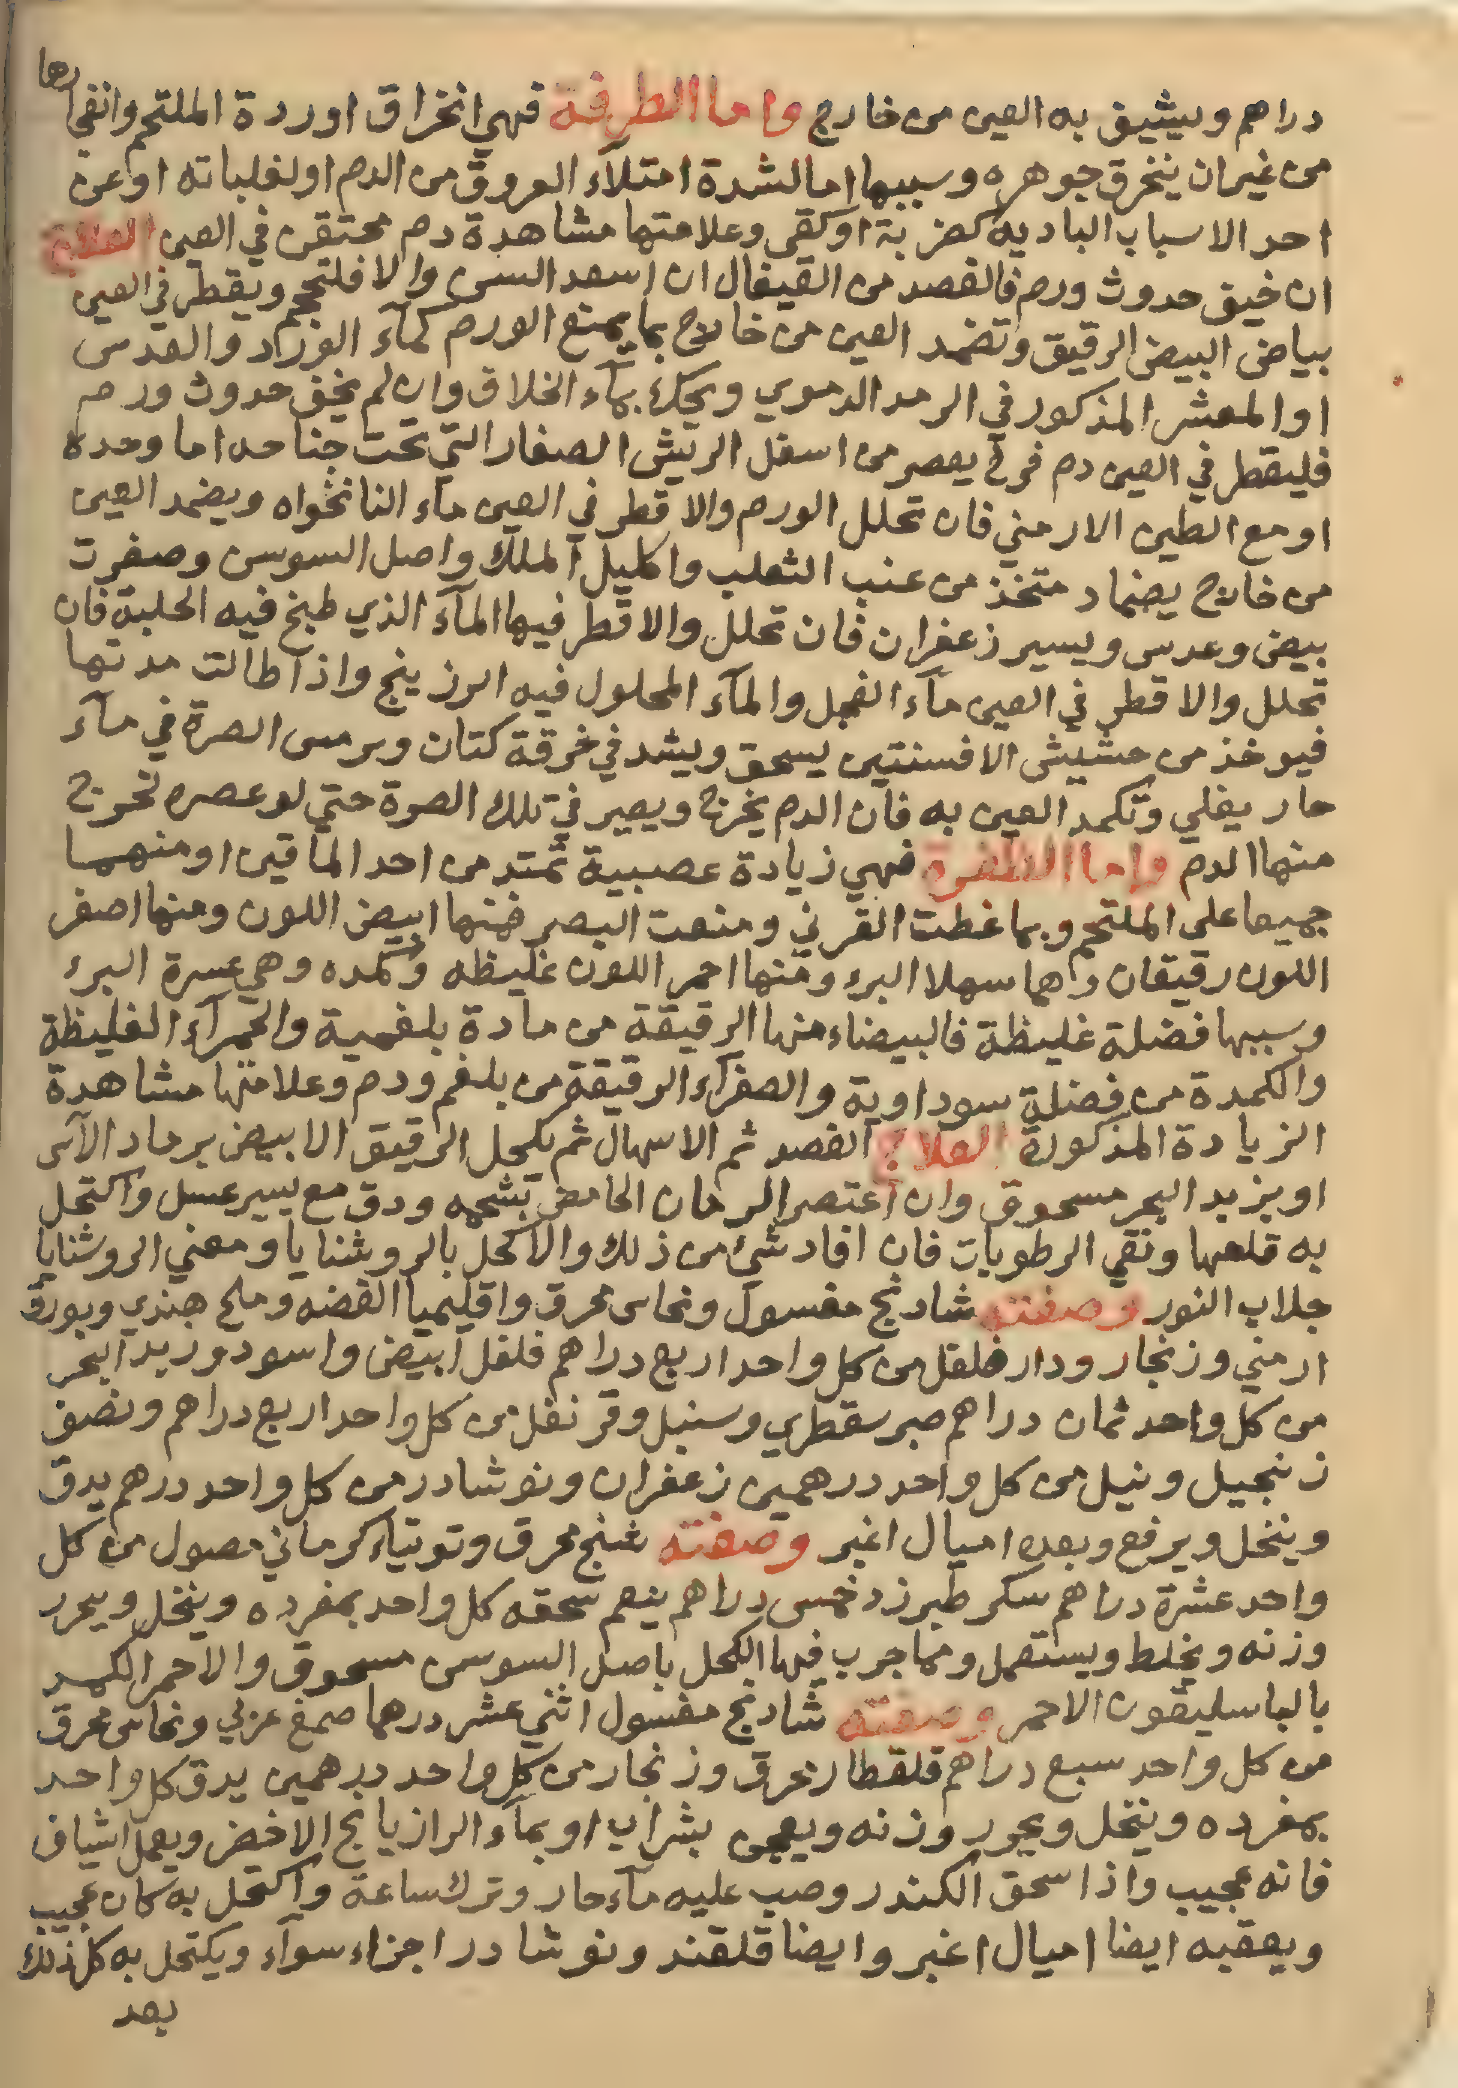 دراهم ويشيق به العين من خارج واما الطرفة فهي انخراق اوردة الملتحم وانفجارها
من غير ان ينخرق جوهره وسببها اما لشدة امتلاء العروق من الدم او لغلباته او عن
احد الاسباب الباديه كضربة اوكقي وعلامتها مشاهدة دم محتقن في العين العلاج
ان خيف حدوث ورم فالفصد من القيفال ان اسعد السن والا فلتحجم ويقطر في العين
بياض البيض الرقيق وتضمد العين من خارج بما يمنع الورم كمآء الفرزاد والعدس
او المعشر المذكور في الرمد الدموي ويحك بمآء الخلاق وان لم يخف حدوث ورم
فليقطر في العين دم فرخ يعصر من اسفل الريش الصغار التي تحت جناحه اما وحده
او مع الطين الارمني فان تحلل الورم والا قطر في العين مآء النانخواه ويضمد العين
من خارج بضماد متخذ من عنب الثعلب واكليل الملك واصل السوسن وصفرت
بيض وعدس ويسير زعفران فان تحلل والا قطر فيها المآء الذي طبخ فيه الحلبة فان
تحلل والا قطر في العين مآء الفجل والمآء المحلول فيه الرزينج واذا طالت مدتها
فيوخذ من حشيش الافسنتين يسحق ويشد في خرقة كتان ويرمس الصرة في مآء
حار يغلي وتكمد العين به فان الدم يخرج ويصير في تلك الصرة حتي لو عصره لخرج
منها الدم واما الظفرة فهي زيادة عصبية تمتد من احد الماقين او منهما
جميعا على الملتحم وبما غطت القرني ومنعت البصر فمنها ابيض اللون ومنها اصفر
اللون رقيقان وهما سهلا البرء ومنها احمر اللون غليظه وكمده وهي عسرة البرء
وسببها فضلة غليظة فالبيضاء منها الرقيقة من مادة بلغمية والحمرآء الغليظة
والكمدة من فضلة سوداوية والصفرآء الرقيقة من بلغم ودم وعلامتها مشاهدة
الزيادة المذكورة العلاج الفصد ثم الاسهال ثم يكحل الرقيق الابيض برماد الآس
او بزبد البحر مسحوق وان اعتصر الرمان الحامض بشحمه ودق مع يسير عسل واكتحل
به قلعها ونقي الرطوبات فان افاد شئ من ذلك والا كحل بالروشنايا ومعني الروشنايا
جلاب النور وصفته شادنج مغسول ونحاس محرق واقليميا الفضه وملح هندي وبورق
ارمني وزنجار ودار فلفل من كل واحد اربع دراهم فلفل ابيض واسود وزبد البحر
من كل واحد ثمان دراهم صبر سقطري وسنبل وقرنفل من كل واحد اربع دراهم ونصف
زنجبيل ونيل من كل واحد درهمين زعفران ونوشادر من كل واحد درهم يدق
وينخل ويرفع وبعده اميال اغبر وصفته شنج محرق وتوتياء كرماني مصول من كل
واحد عشرة دراهم سكر طبرزد خمس دراهم ينعم سحقه كل واحد بمفرده وينخل ويحرر
وزنه ويخلط ويستعمل ومما جرب فيها الكحل باصل السوسن مسحوق والاحمر الكمد
بالباسليقون الاحمر وصفته شادنج مغسول اثني عشر درهما صمغ عربي ونحاس محرق
من كل واحد سبع دراهم قلقطار محرق وزنجار من كل واحد درهمين يدق كل واحد
بمفرده وينخل ويحرر وزنه ويعجن بشراب او بمآء الرازيانج الاخضر ويعمل اشياف
فانه عجيب واذا سحق الكندر وصب عليه مآء حار وترك ساعة واكتحل به كان عجيب
ويعقبه ايضا اميال اغبر وايضا قلقند ونوشادر اجزاء سوآء ويكتحل به كل ذلك
بعد